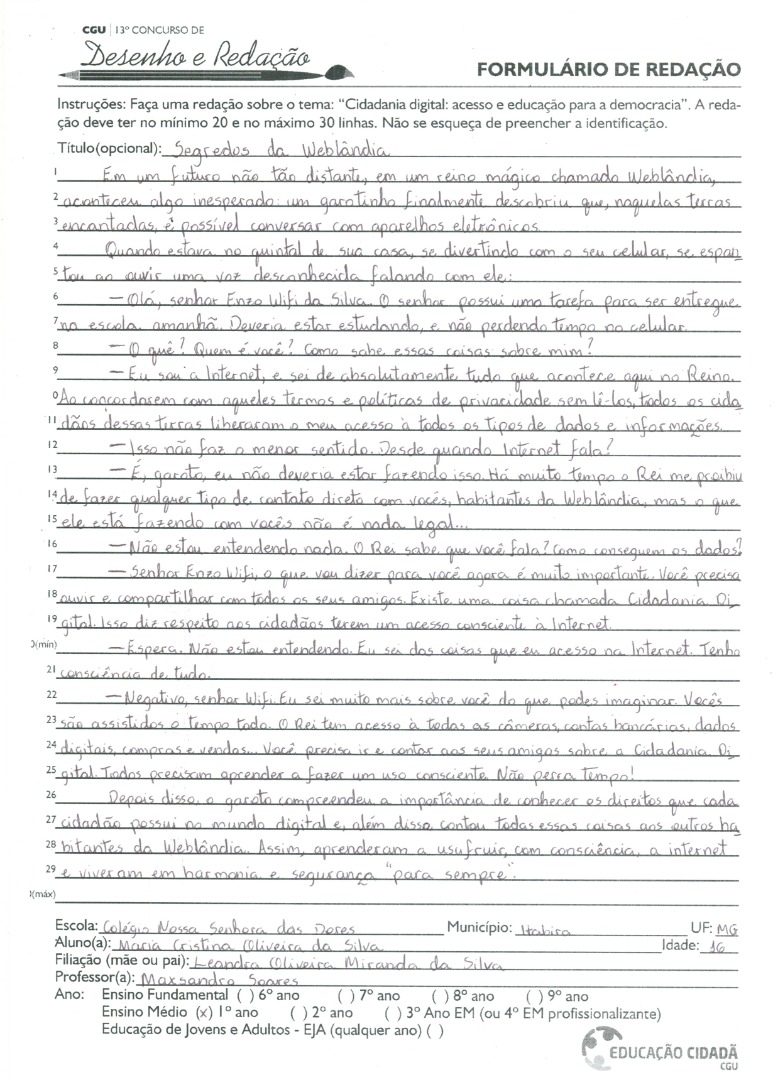 CGU 13º CONCURSO DE
Desenho e Redação
FORMULÁRIO DE REDAÇÃO
Instruções: Faça uma redação sobre o tema: “Cidadania digital: acesso e educação para a democracia”. A reda-
ção deve ter no mínimo 20 e no máximo 30 linhas. Não se esqueça de preencher a identificação.
Título(opcional): Segredos da Weblândia
1 Em um futuro não tão distante, em um reino mágico chamado Weblândia,
2 aconteceu algo inesperado: um garotinho finalmente descobriu que, naquelas terras
3 encantadas, é possível conversar com aparelhos eletrônicos.
4 Quando estava no quintal de sua casa, se divertindo com o seu celular, se espan
5 tou ao ouvir uma voz desconhecida falando com ele:
6 — Olá, senhor Enzo Wifi da Silva. O senhor possui uma tarefa para ser entregue
7 na escola amanhã. Deveria estar estudando, e não perdendo tempo no celular.
8 — O quê? Quem é você? Como sabe essas coisas sobre mim?
9 — Eu sou a Internet, e sei de absolutamente tudo que acontece aqui no Reino.
0 Ao concordarem com aqueles termos e políticas de privacidade sem lê-los, todos os cida
11 dãos dessas terras liberaram o meu acesso à todos os tipos de dados e informações.
12 — Isso não faz o menor sentido. Desde quando Internet fala?
13 — É, garoto, eu não deveria estar fazendo isso. Há muito tempo o Rei me proibiu
14 de fazer qualquer tipo de contato direto com vocês, habitantes da Weblândia, mas o que
15 ele está fazendo com vocês não é nada legal...
16 — Não estou entendendo nada. O Rei sabe que você fala? Como conseguem os dados?
17 — Senhor Enzo Wifi, o que vou dizer para você agora é muito importante. Você precisa
18 ouvir e compartilhar com todos os seus amigos. Existe uma coisa chamada Cidadania Di
19 gital. Isso diz respeito aos cidadãos terem um acesso consciente à Internet.
0(mín) — Espera. Não estou entendendo. Eu sei das coisas que eu acesso na Internet. Tenho
21 consciência de tudo.
22 — Negativo, senhor Wifi. Eu sei muito mais sobre você do que podes imaginar. Vocês
23 são assistidos o tempo todo. O Rei tem acesso à todas as câmeras, contas bancárias, dados
24 digitais, compras e vendas... Você precisa ir e contar aos seus amigos sobre a Cidadania Di
25 gital. Todos precisam aprender a fazer um uso consciente. Não perca tempo!
26 Depois disso, o garoto compreendeu a importância de conhecer os direitos que cada
27 cidadão possui no mundo digital e, além disso, contou todas essas coisas aos outros ha
28 bitantes da Weblândia. Assim, aprenderam a usufruir, com consciência, a internet
29 e viveram em harmonia e segurança "para sempre".
(máx)
Escola: Colégio Nossa Senhora das Dores Município: Itabira UF: MG
Aluno(a): Maria Cristina Oliveira da Silva Idade: 16
Filiação (mãe ou pai): Leandra Oliveira Miranda da Silva
Professor(a): Maxsandro Soares
Ano: Ensino Fundamental ( ) 6º ano ( ) 7º ano ( ) 8º ano ( ) 9º ano
Ensino Médio (x) 1º ano ( ) 2º ano ( ) 3º Ano EM (ou 4º EM profissionalizante)
Educação de Jovens e Adultos - EJA (qualquer ano) ( )
EDUCAÇÃO CIDADÃ
CGU